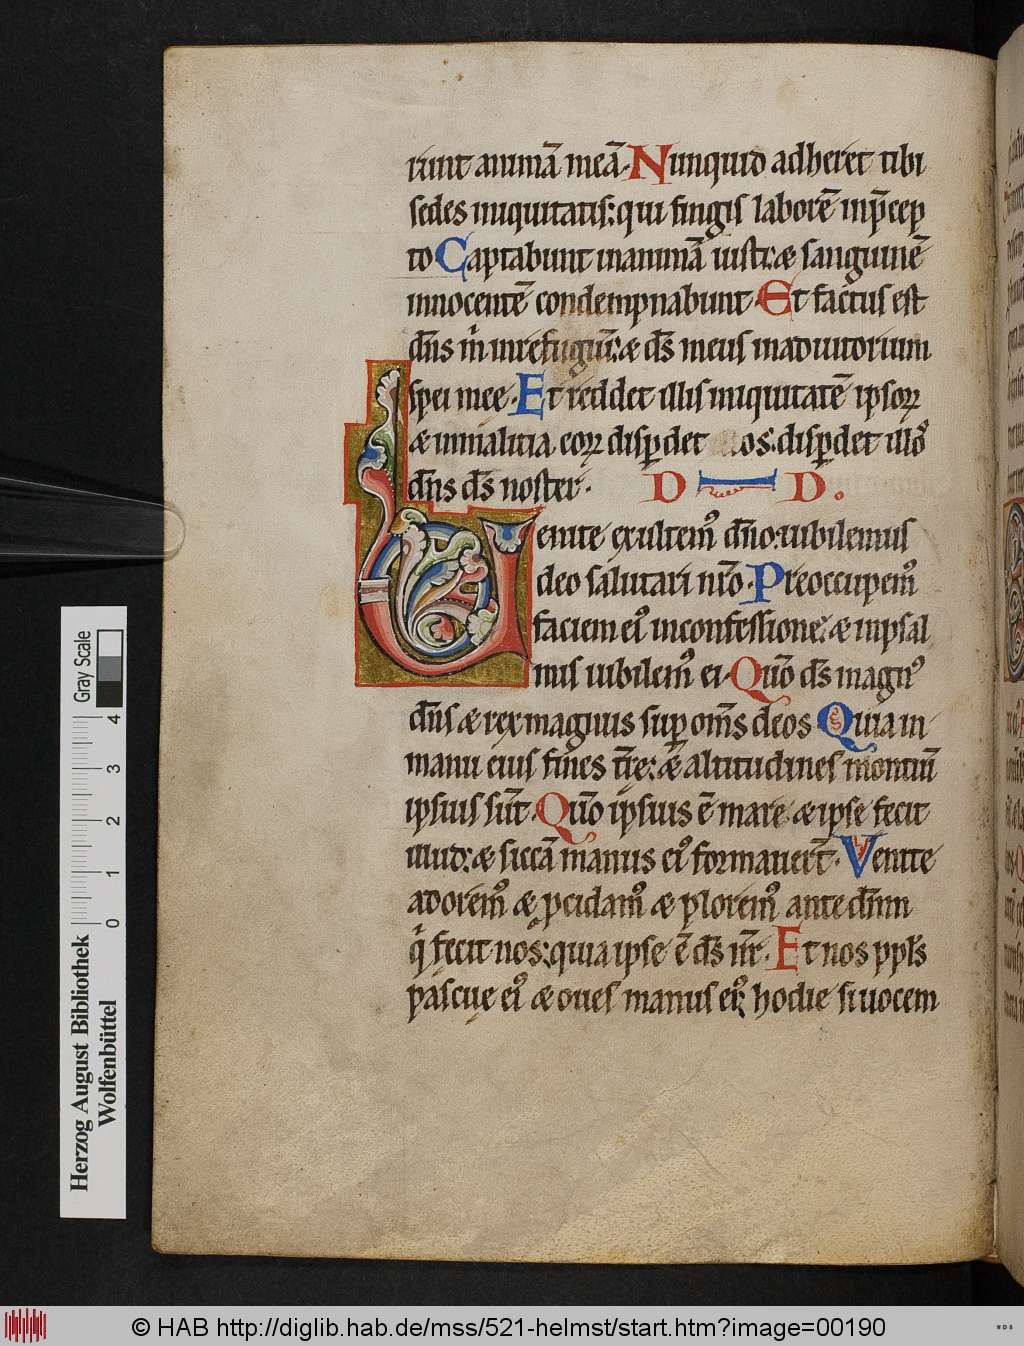 runt animā meā. Nunquid adheret tibi
sedes iniquitatis: qui fingis laborē inp̄cep
to Captabunt inanimā iusti: æ sanguinē
innocentē condempnabunt. Et factus est
dn̄s m̍ inrefugiū: æ ds̄ meus inadiutorium
spei mee. Et reddet illis iniquitatē ipsoꝝ
æ inmalitia eoꝝ disꝑdet eos: disꝑdet illoꝰ
dn̄s ds̄ noster. D D.
Venite exultemꝰ dn̄o: iubilemus
deo salutari nr̄o. Preoccupemꝰ
faciem eiꝰ inconfessione: æ inpsal
mis iubilemꝰ ei. Qm̄o ds̄ magnꝰ
dn̄s æ rex magnus suꝑ om̄s deos Quia in
manu eius fines tr̄re: æ altitudines montiū
ipsius sūt. Qm̄o ipsius ē mare æ ipse fecit
illud: æ siccā manus eiꝰ formauer̄t. Venite
adoremꝰ æ ꝓcidamꝰ æ ploremꝰ ante dn̄m
q̍ fecit nos: quia ipse ē ds̄ nr̄. Et nos ppl̄s
pascue eiꝰ æ oues manus eiꝰ: hodie si uocem
Gray Scale
0 1 2 3 4
Herzog August Bibliothek
Wolfenbüttel
© HAB http://diglib.hab.de/mss/521-helmst/start.htm?image=00190